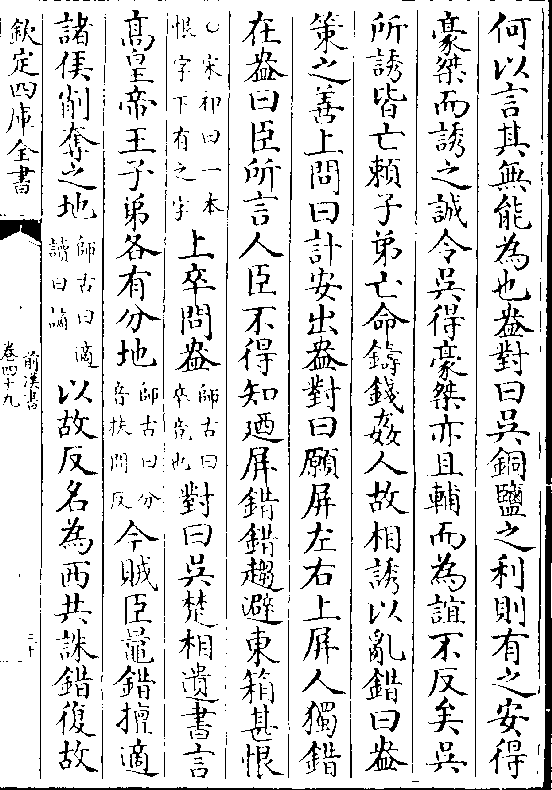 何以言其無能為也盎對曰吳銅鹽之利則有之安得
豪桀而誘之誠令吳得豪桀亦且輔而為誼不反矣吳
所誘皆亡賴子弟亡命鑄錢姦人故相誘以亂錯曰盎
策之善上問曰計安出盎對曰願屏左右上屏人獨錯
在盎曰臣所言人臣不得知廼屏錯錯趨避東箱甚恨
○宋祁曰一本恨字下有之字上卒問盎師古曰卒竟也對曰吳楚相遺書言
高皇帝王子弟各有分地師古曰分音扶問反今賊臣鼂錯擅適
諸侯削奪之地師古曰適讀曰讁以故反名為西共誅錯復故
欽定四庫全書
前漢書
卷四十九